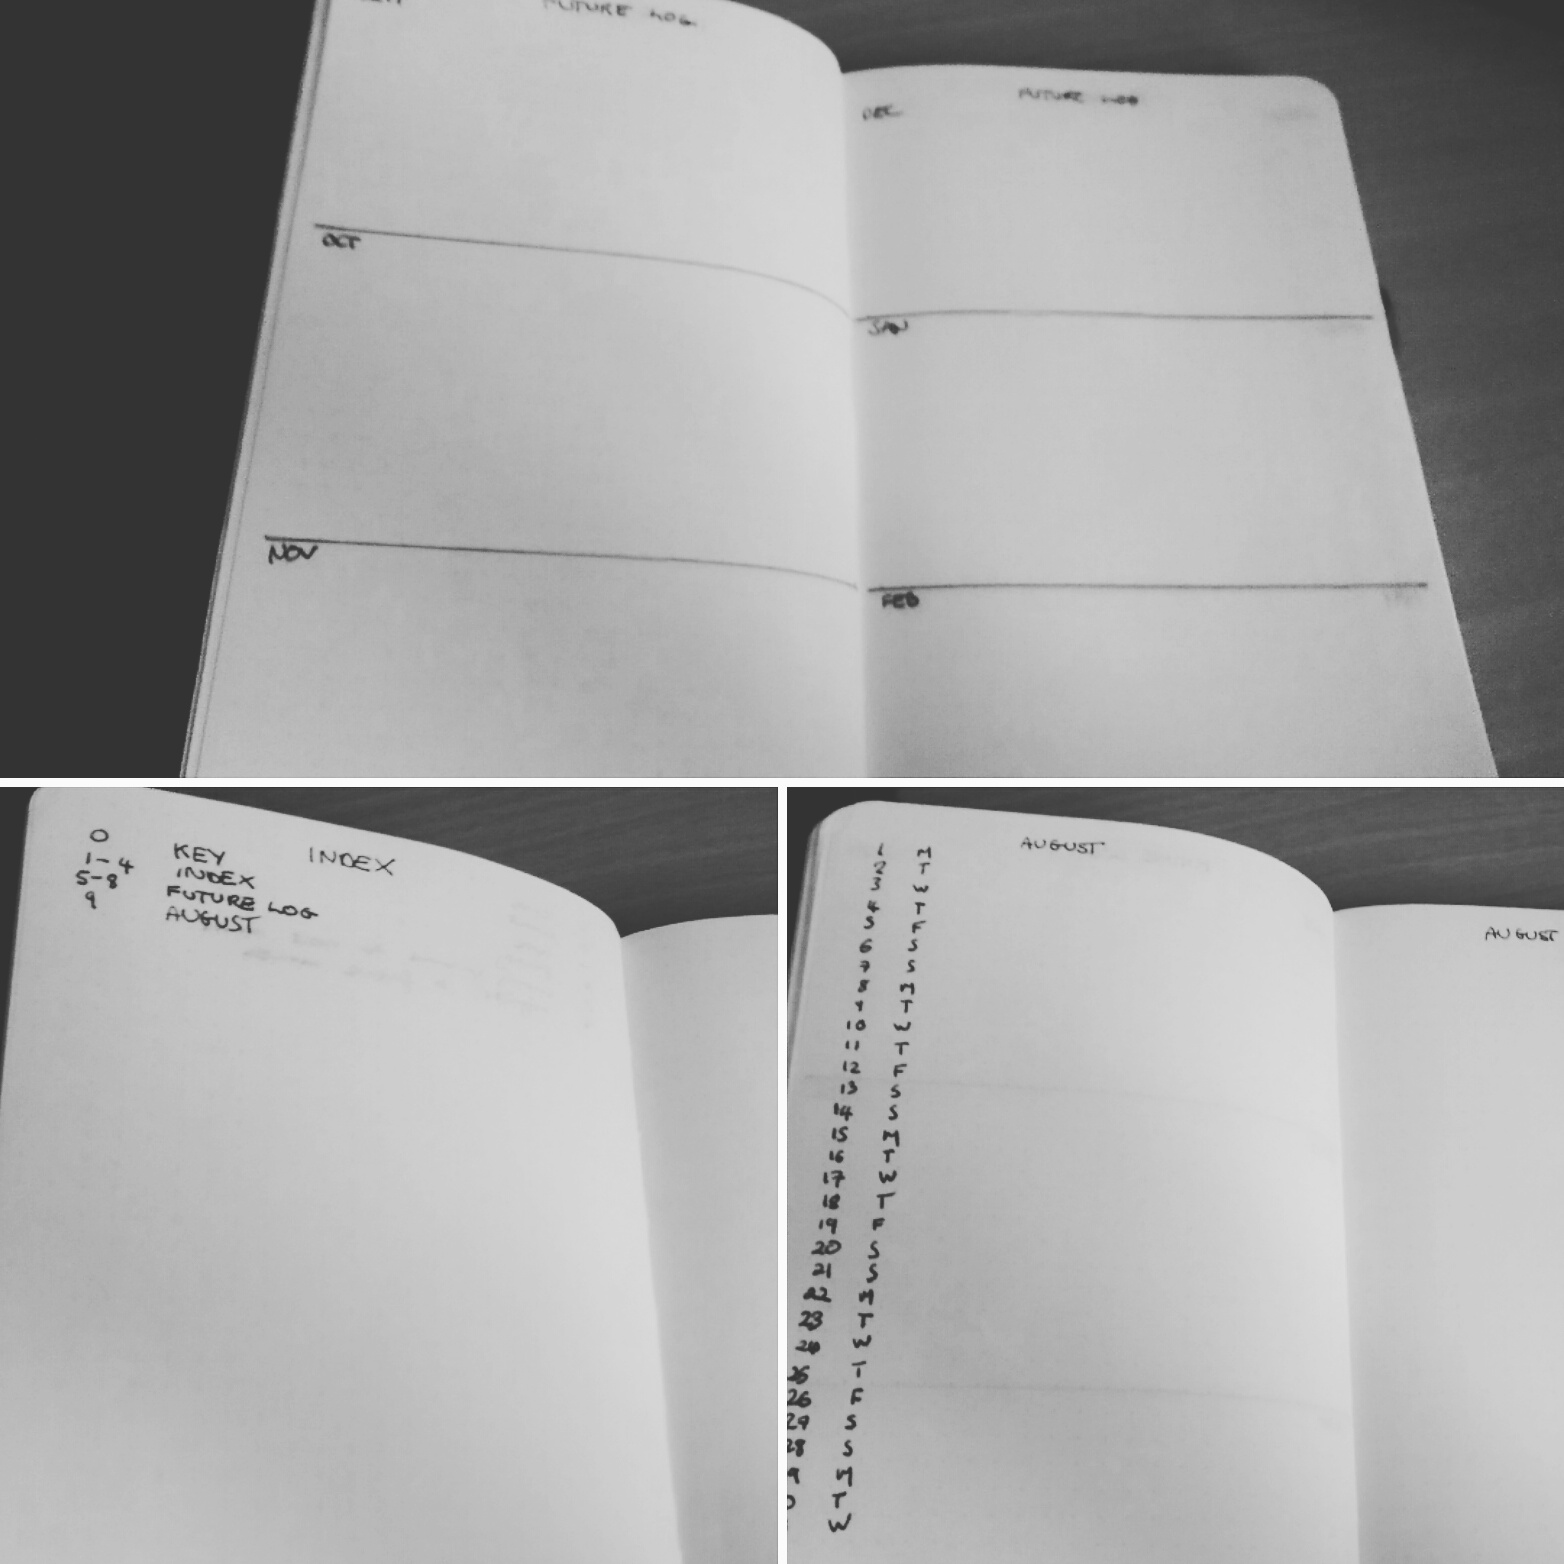 FUTURE LOG
OCT
NOV
FUTURE LOG
DEC
JAN
FEB
INDEX
0 KEY
1-4 INDEX
5-8 FUTURE LOG
9 AUGUST
AUGUST
1 M
2 T
3 W
4 T
5 F
6 S
7 S
8 M
9 T
10 W
11 T
12 F
13 S
14 S
15 M
16 T
17 W
18 T
19 F
20 S
21 S
22 M
23 T
24 W
25 T
26 F
27 S
28 S
9 M
0 T
W
AUGUST